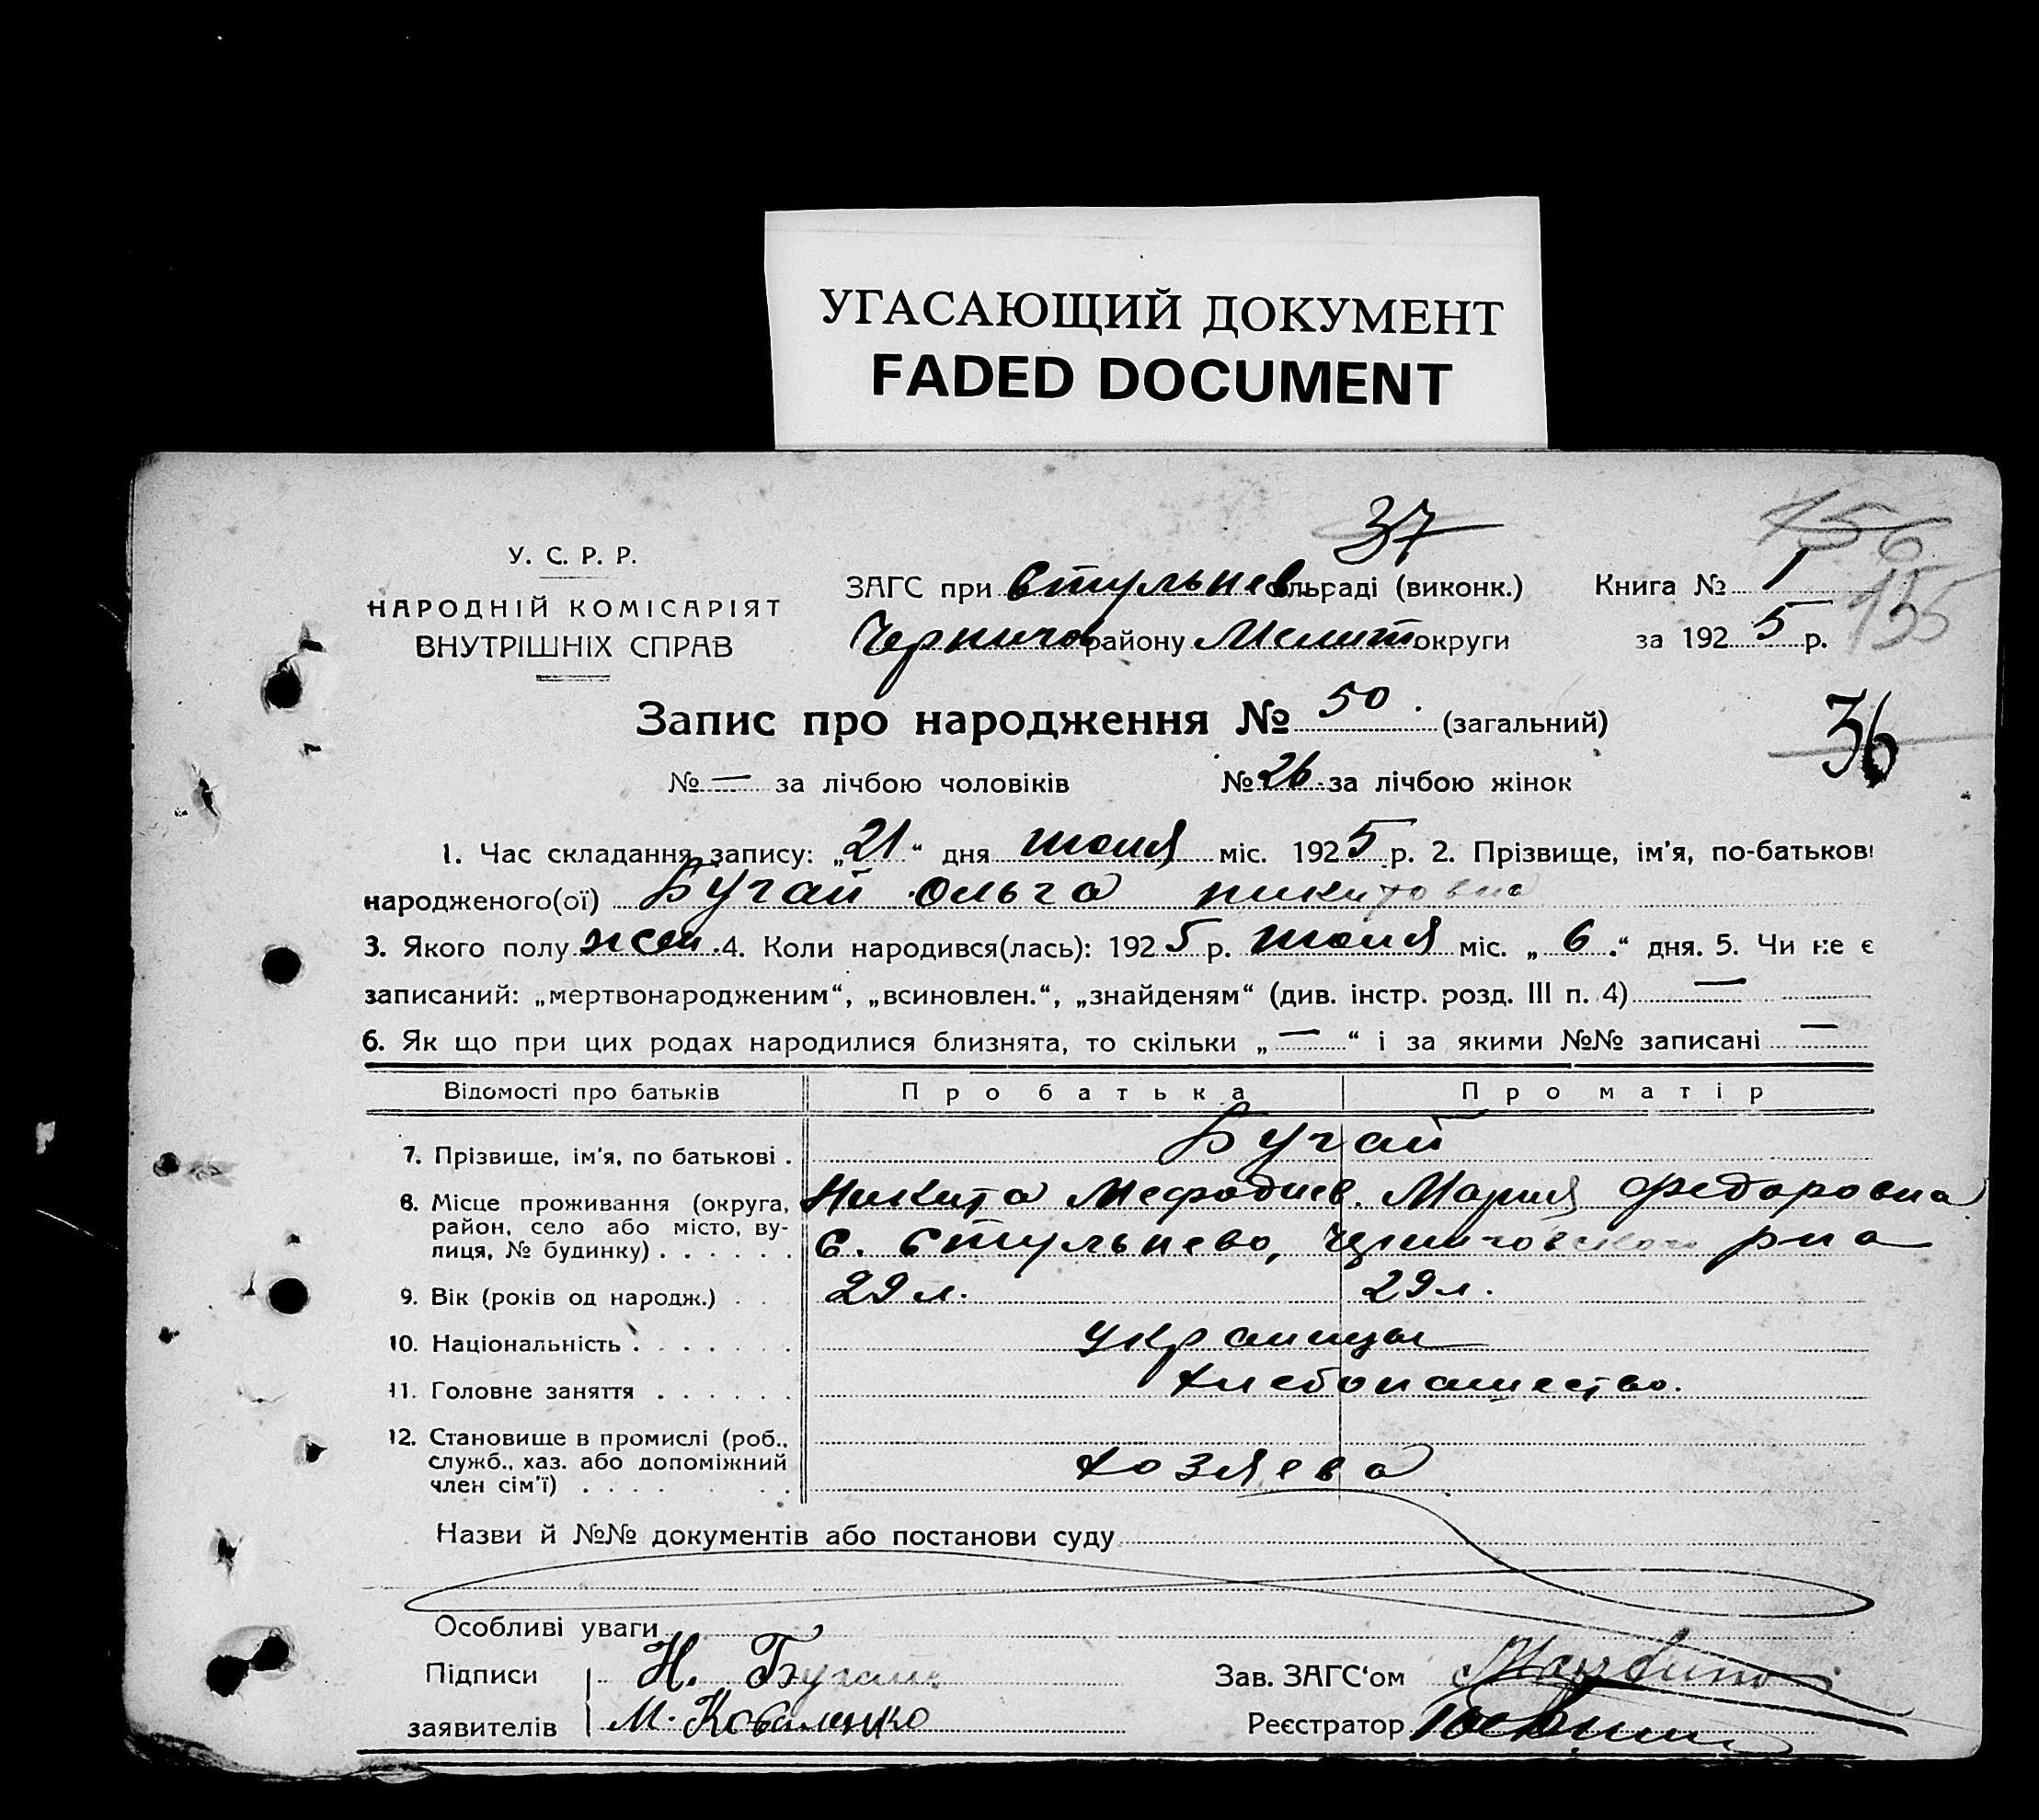 УГАСАЮЩИЙ ДОКУМЕНТ
FADED DOCUMENT
37
156
У. С. Р. Р.
НАРОДНІЙ КОМІСАРІЯТ
ВНУТРІШНІХ СПРАВ
ЗАГС при Стульнев сільраді (виконк.) Книга № 1
155
Чернигов району Мелит округи за 1925 р.
Запис про народження № 50. (загальний)
36
№ — за лічбою чоловіків № 26 за лічбою жінок
1. Час складання запису: „21“ дня июля міс. 1925 р. 2. Прізвище, ім'я, по-батькові
народженого(ої) Бугай Ольга Никитовна
3. Якого полу жен. 4. Коли народився(лась): 1925 р. июля міс. „6.“ дня. 5. Чи не є
записаний: „мертвонародженим“, „всиновлен.“, „знайденям“ (див. інстр. розд. III п. 4) —
6. Як що при цих родах народилися близнята, то скільки „—“ і за якими №№ записані —
Відомості про батьків Про батька Про матір
7. Прізвище, ім'я, по батькові . Бугай
Никита Мефодиев. Мария Федоровна
8. Місце проживання (округа,
район, село або місто, ву-
лиця, № будинку) . . . . . . С. Стульнево, Черниговского р-на
9. Вік (років од народж.) . . . 29 л. 29 л.
10. Національність . . . . . . . Украинцы
11. Головне заняття . . . . . . Хлебопашество.
12. Становище в промислі (роб.,
служб., хаз. або допоміжний
член сім'ї) . . . . . . . . Хозяева
Назви й №№ документів або постанови суду
Особливі уваги
Підписи Н. Бугай Зав. ЗАГС'ом
заявителів М. Коваленко Реєстратор